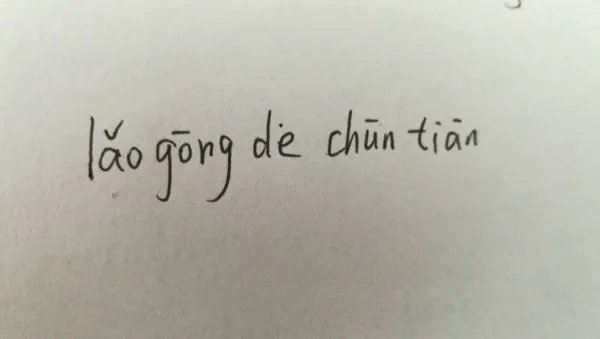 lǎo gōng dė chūn tiān